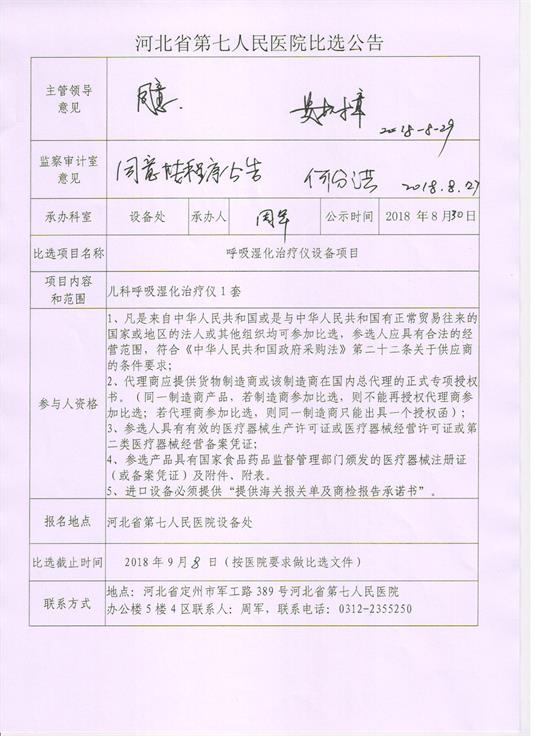 河北省第七人民医院比选公告
主管领导
意见
同意.
2018-8-29
监察审计室
意见
同意按程序公告
2018.8.27
承办科室
设备处
承办人
周军
公示时间
2018 年8月30日
比选项目名称
呼吸湿化治疗仪设备项目
项目内容
和范围
儿科呼吸湿化治疗仪1套
参与人资格
1、凡是来自中华人民共和国或是与中华人民共和国有正常贸易往来的
国家或地区的法人或其他组织均可参加比选，参选人应具有合法的经
营范围，符合《中华人民共和国政府采购法》第二十二条关于供应商
的条件要求；
2、代理商应提供货物制造商或该制造商在国内总代理的正式专项授权
书。（同一制造商产品，若制造商参加比选，则不能再授权代理商参
加比选；若代理商参加比选，则同一制造商只能出具一个授权函）；
3、参选人具有有效的医疗器械生产许可证或医疗器械经营许可证或第
二类医疗器械经营备案凭证；
4、参选产品具有国家食品药品监督管理部门颁发的医疗器械注册证
（或备案凭证）及附件、附表。
5、进口设备必须提供“提供海关报关单及商检报告承诺书”。
报名地点
河北省第七人民医院设备处
比选截止时间
2018年9月8日（按医院要求做比选文件）
联系方式
地点：河北省定州市军工路389号河北省第七人民医院
办公楼5楼4区联系人：周军，联系电话：0312-2355250